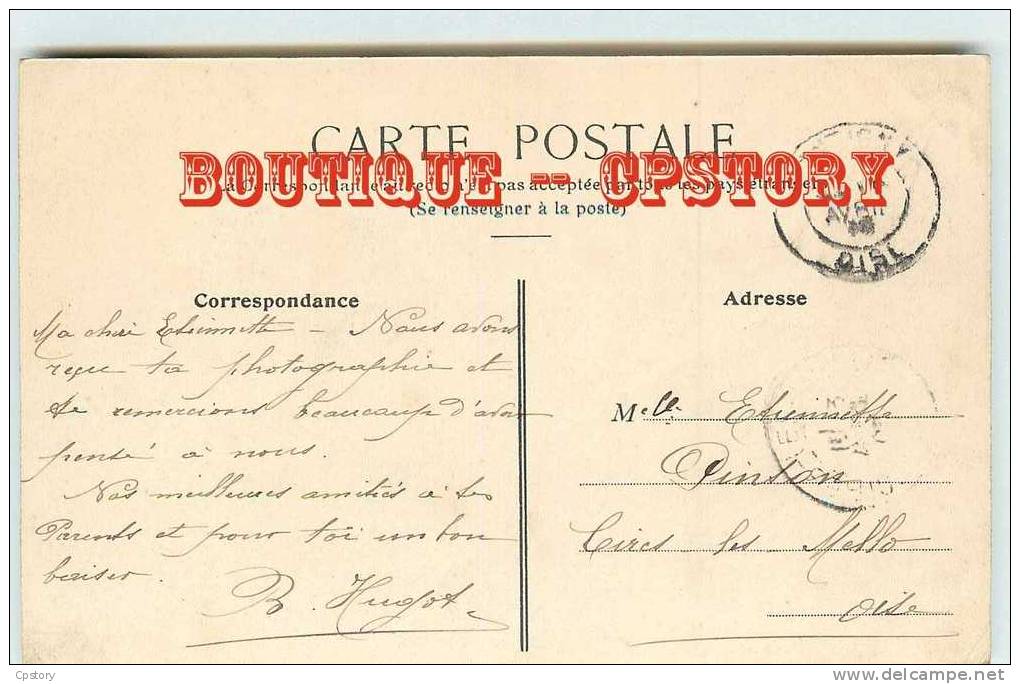 CARTE POSTALE
BOUTIQUE -- CPSTORY
La Correspondance au recto n'est pas acceptée par tous les pays étrangers
(Se renseigner à la poste)
OISE
Correspondance
Ma chère Etiennette – Nous avons
reçu ta photographie et
te remercions beaucoup d'avoir
pensé à nous.
Nos meilleures amitiés à tes
Parents et pour toi un bon
baiser.
B. Hugot
Adresse
Melle Etiennette
Pinton
Cires les Mello
Oise
Cpstory
delcampe.net